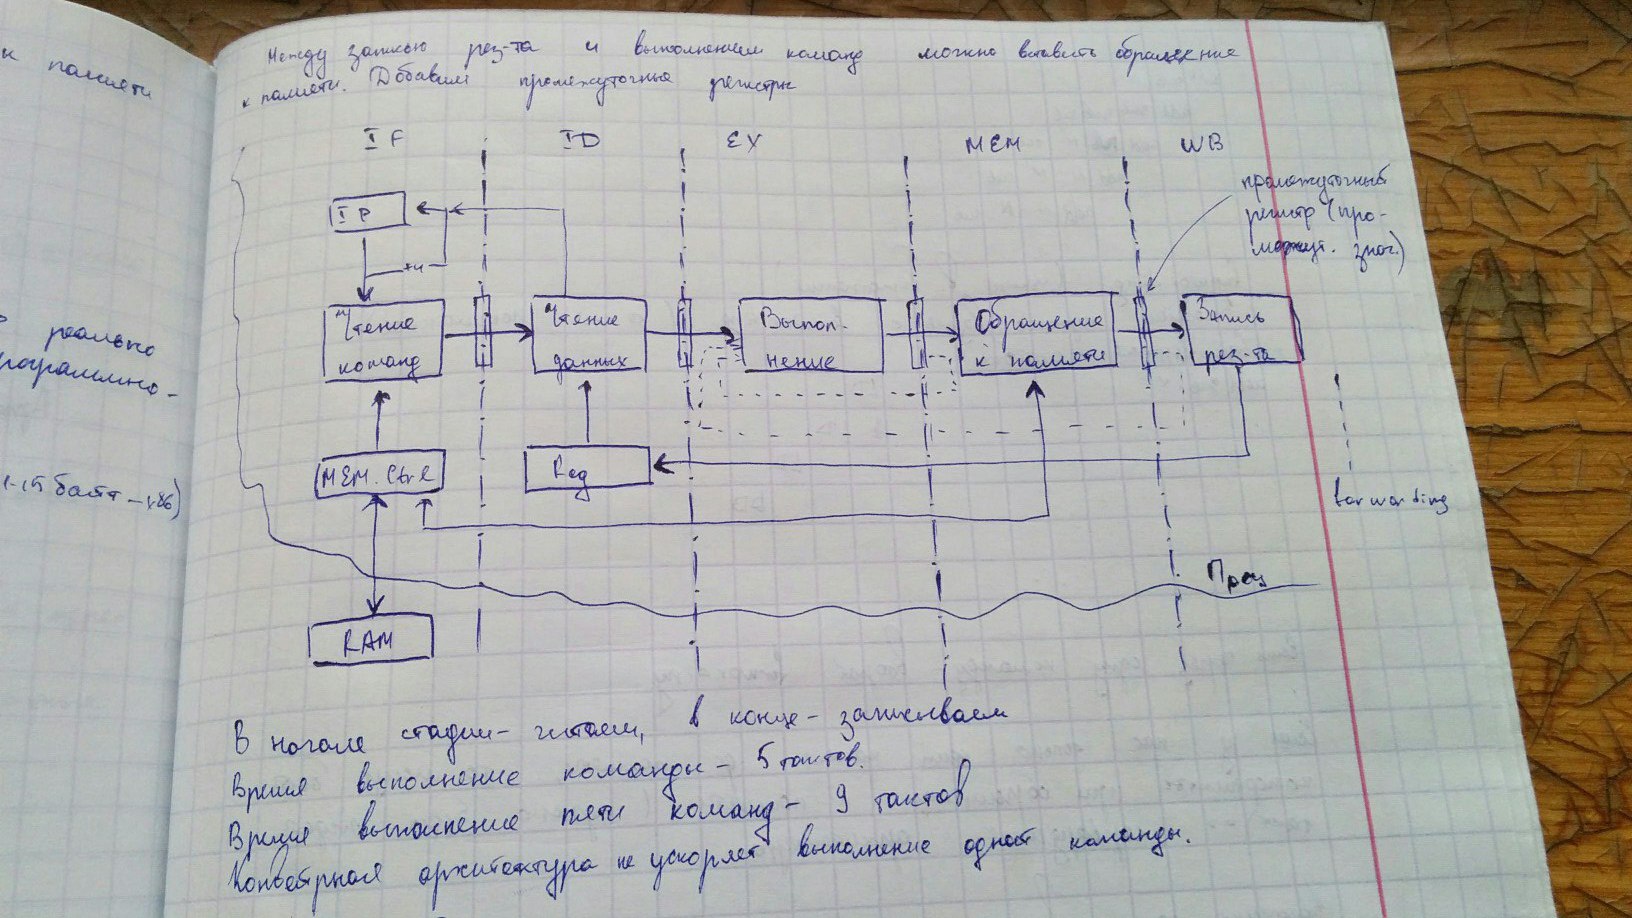 к памяти
реально
программно-
1-15 байт – x86)
Между записью рез-та и выполнением команд можно вставить обращение
к памяти. Добавим промежуточные регистры
IF ID EX MEM WB
промежуточный
регистр (про-
межут. знач.)
IP
+4
Чтение
команд
Чтение
данных
Выпол-
нение
Обращение
к памяти
Запись
рез-та
MEM. Ctrl
Reg
forwarding
Проц
RAM
В начале стадии – читаем, в конце – записываем
Время выполнение команды – 5 тактов.
Время выполнение пяти команд – 9 тактов
Конвейерная архитектура не ускоряет выполнение одной команды.